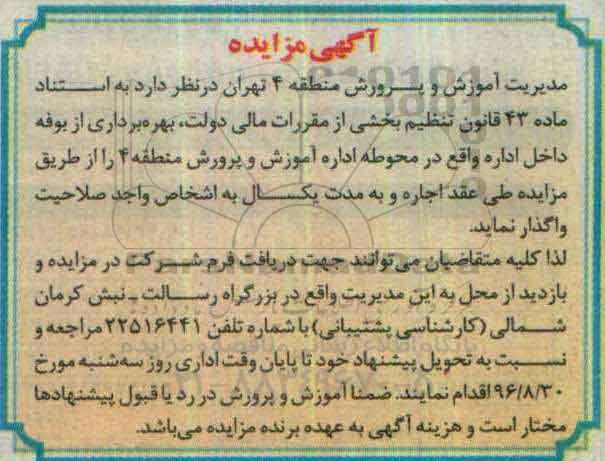 آگهی مزایده
مدیریت آموزش و پرورش منطقه ۴ تهران درنظر دارد به استناد
ماده ۴۳ قانون تنظیم بخشی از مقررات مالی دولت، بهره‌برداری از بوفه
داخل اداره واقع در محوطه اداره آموزش و پرورش منطقه ۴ را از طریق
مزایده طی عقد اجاره و به مدت یکسال به اشخاص واجد صلاحیت
واگذار نماید.
لذا کلیه متقاضیان می‌توانند جهت دریافت فرم شرکت در مزایده و
بازدید از محل به این مدیریت واقع در بزرگراه رسالت - نبش کرمان
شمالی (کارشناسی پشتیبانی) با شماره تلفن ۲۲۵۱۶۴۴۱ مراجعه و
نسبت به تحویل پیشنهاد خود تا پایان وقت اداری روز سه‌شنبه مورخ
۹۶/۸/۳۰ اقدام نمایند. ضمنا آموزش و پرورش در رد یا قبول پیشنهادها
مختار است و هزینه آگهی به عهده برنده مزایده می‌باشد.